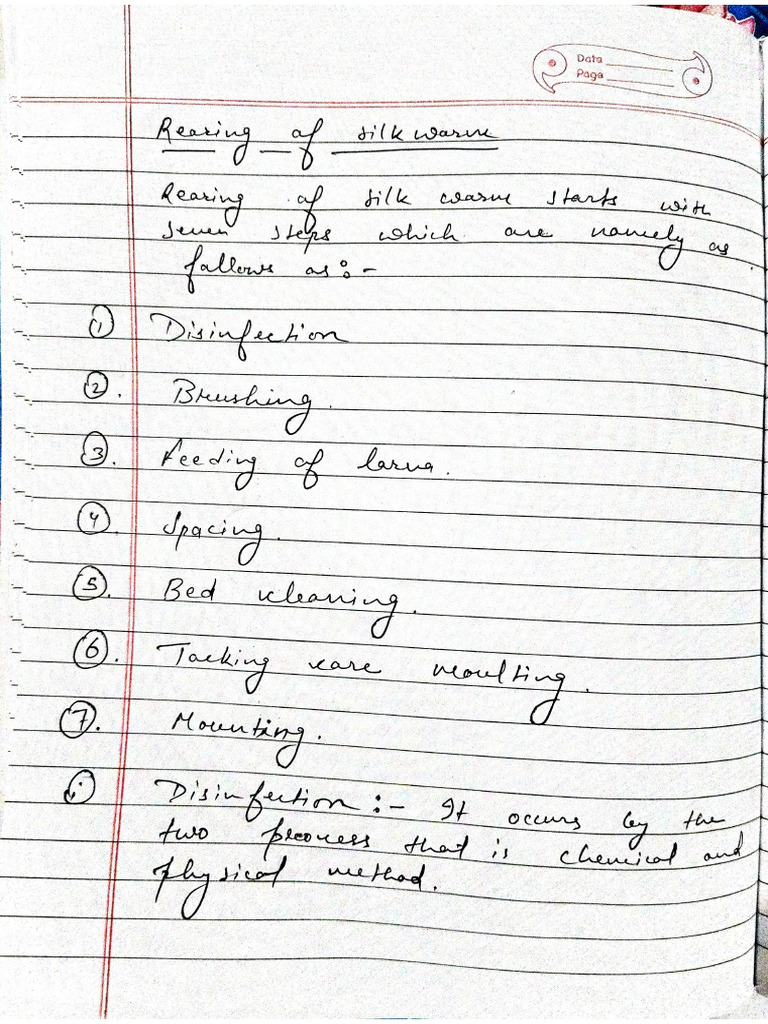 Data
Page
Rearing of silk warm
Rearing of silk warm starts with
seven steps which are namely as
follows as:-
1 Disinfection
2. Brushing.
3. Feeding of larva.
4. Spacing.
5. Bed cleaning.
6. Tacking care moulting.
7. Mounting.
i Disinfection :- It occurs by the
two process that is chemical and
physical method.